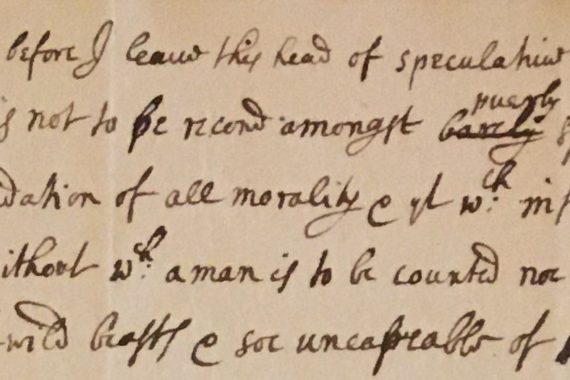 before I leaue this head of speculatiu
s not to be recond amongst barely puerly s
dation of all morality & yt wch: inf
ithout wch: a man is to be counted noe
wild beasts & soe uncapeable of